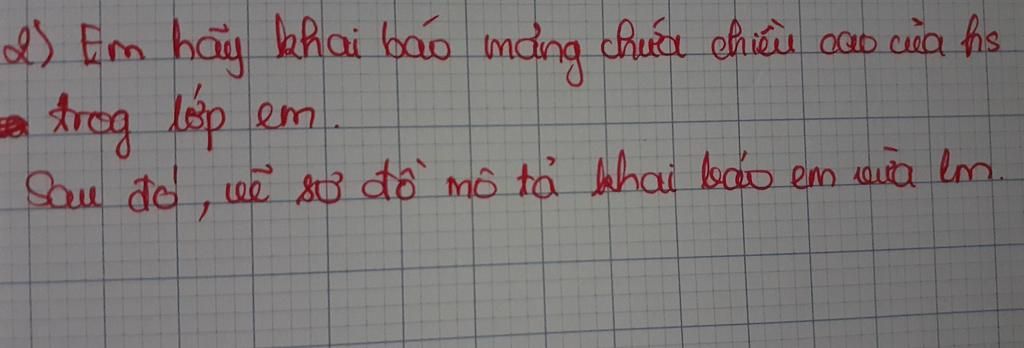 2) Em hãy khai báo mảng chứa chiều cao của hs
trog lớp em.
Sau đó, vẽ sơ đồ mô tả khai báo em vừa lm.